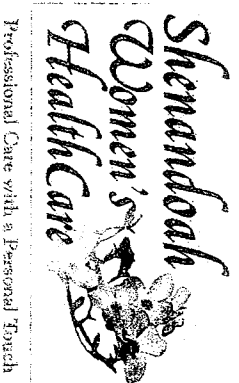 Shenandoah
Women's
HealthCare
Professional Care with a Personal Touch